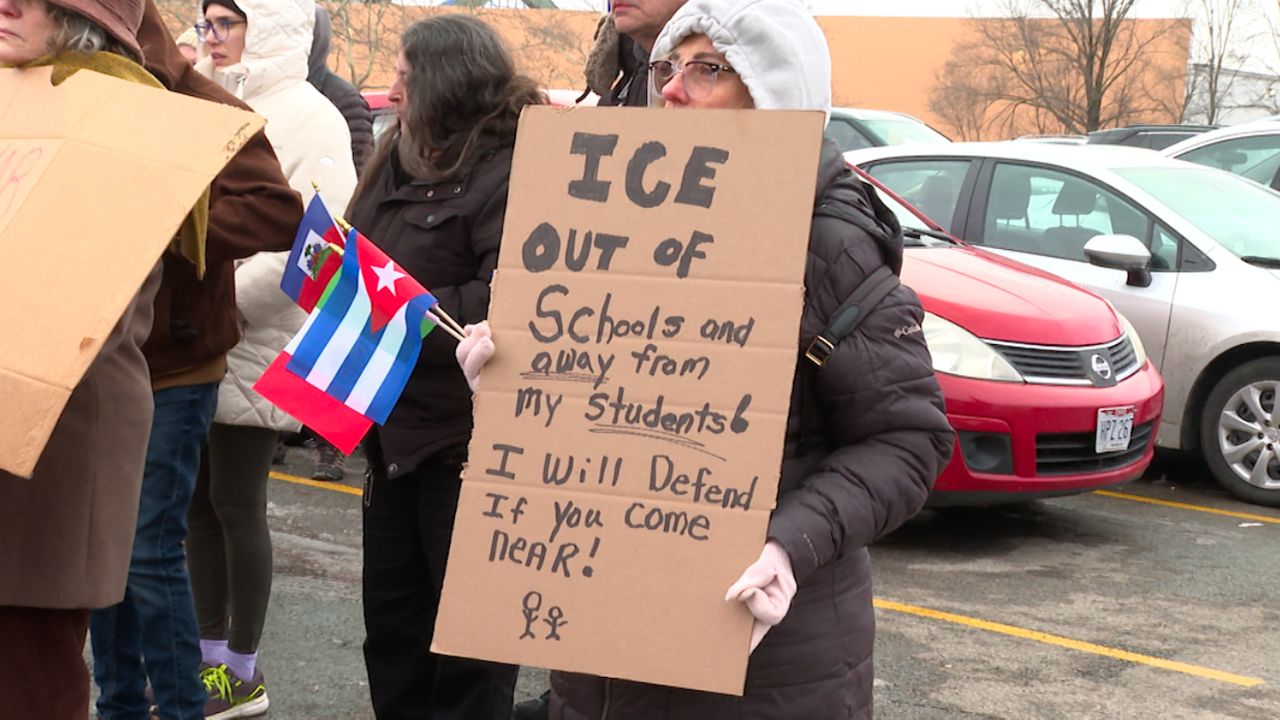 ICE
OUT OF
Schools and
away from
my Students!
I Will Defend
If you come
neAR!
Columbia
HPZ 267